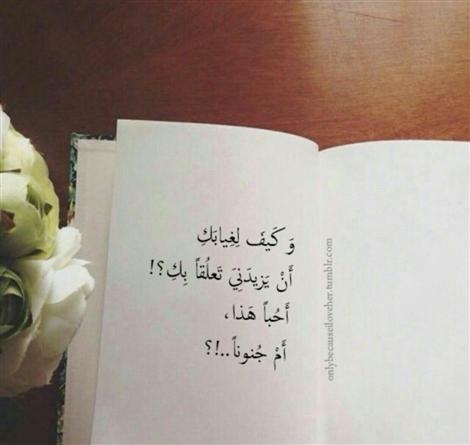 وَ كَيفَ لِغِيابَكِ
أَنْ يَزيدَنيَ تَعلُقاً بِكِ؟!
أَحُباً هَذا،
أَمْ جُنوناً..!؟
onlybecauseiloveher.tumblr.com